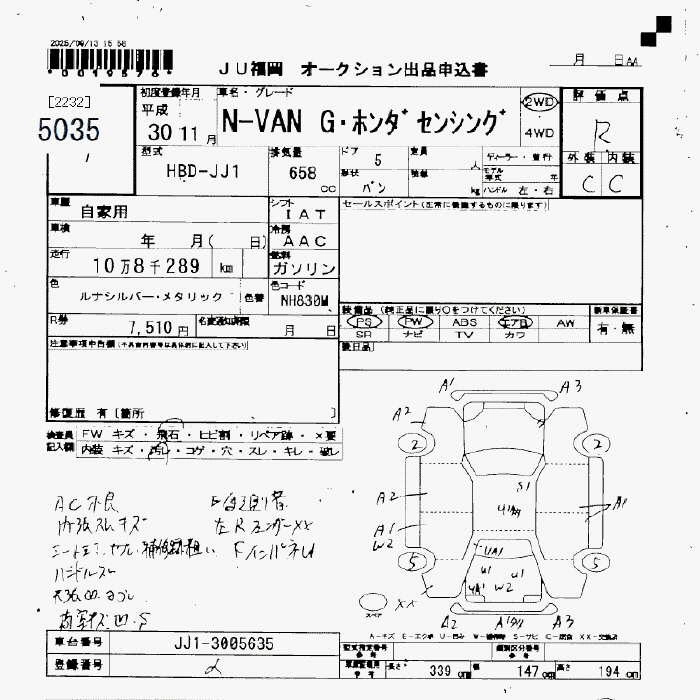 2025/09/13 15 58
*00195976*
JU福岡 オークション出品申込書
月 日 AA
[2232]
5035
初度登録年月
平成
30 11 月
車名・グレード
N-VAN G・ホンダセンシング
2WD
4WD
評価点
R
外装 内装
C C
型式
HBD-JJ1
排気量
658 cc
ドア 5
定員 人
形状 バン
積載 kg
ディーラー・並行
モデル年式 年
ハンドル 左・右
車歴
自家用
シフト
IAT
セールスポイント(正常に機能するものに限ります)
車検
年 月( 日)
冷房
AAC
走行
10万8千289 km
燃料
ガソリン
色
ルナシルバー・メタリック
色替
色コード
NH830M
R券
7,510円
名変通知期限
月 日
装備品(純正品に限り○をつけてください)
PS PW ABS エアB AW
SR ナビ TV カワ
新車保証書
有・無
後日品
注意事項申告欄(不具合内容等は具体的に記入して下さい)
修復歴 有 [箇所 ]
検査員記入欄
FW キズ・飛石・ヒビ割・リペア跡・×要
内装 キズ・汚レ・コゲ・穴・スレ・キレ・破レ
AC不良
内張スレキズ
ハンドルスレ
左Rフェンダー××
A1
A3
A2
2
2
A2
A1
W2
S1
A1
UA1
U1
U1
UA1
W2
5
5
スペア
××
A2
A3
A-キズ E-エクボ U-凹み W-補修跡 S-サビ C-腐食 XX-交換済
車台番号
JJ1-3005635
登録番号
型式指定番号
類別区分番号
長さ 339 cm
幅 147 cm
高さ 194 cm